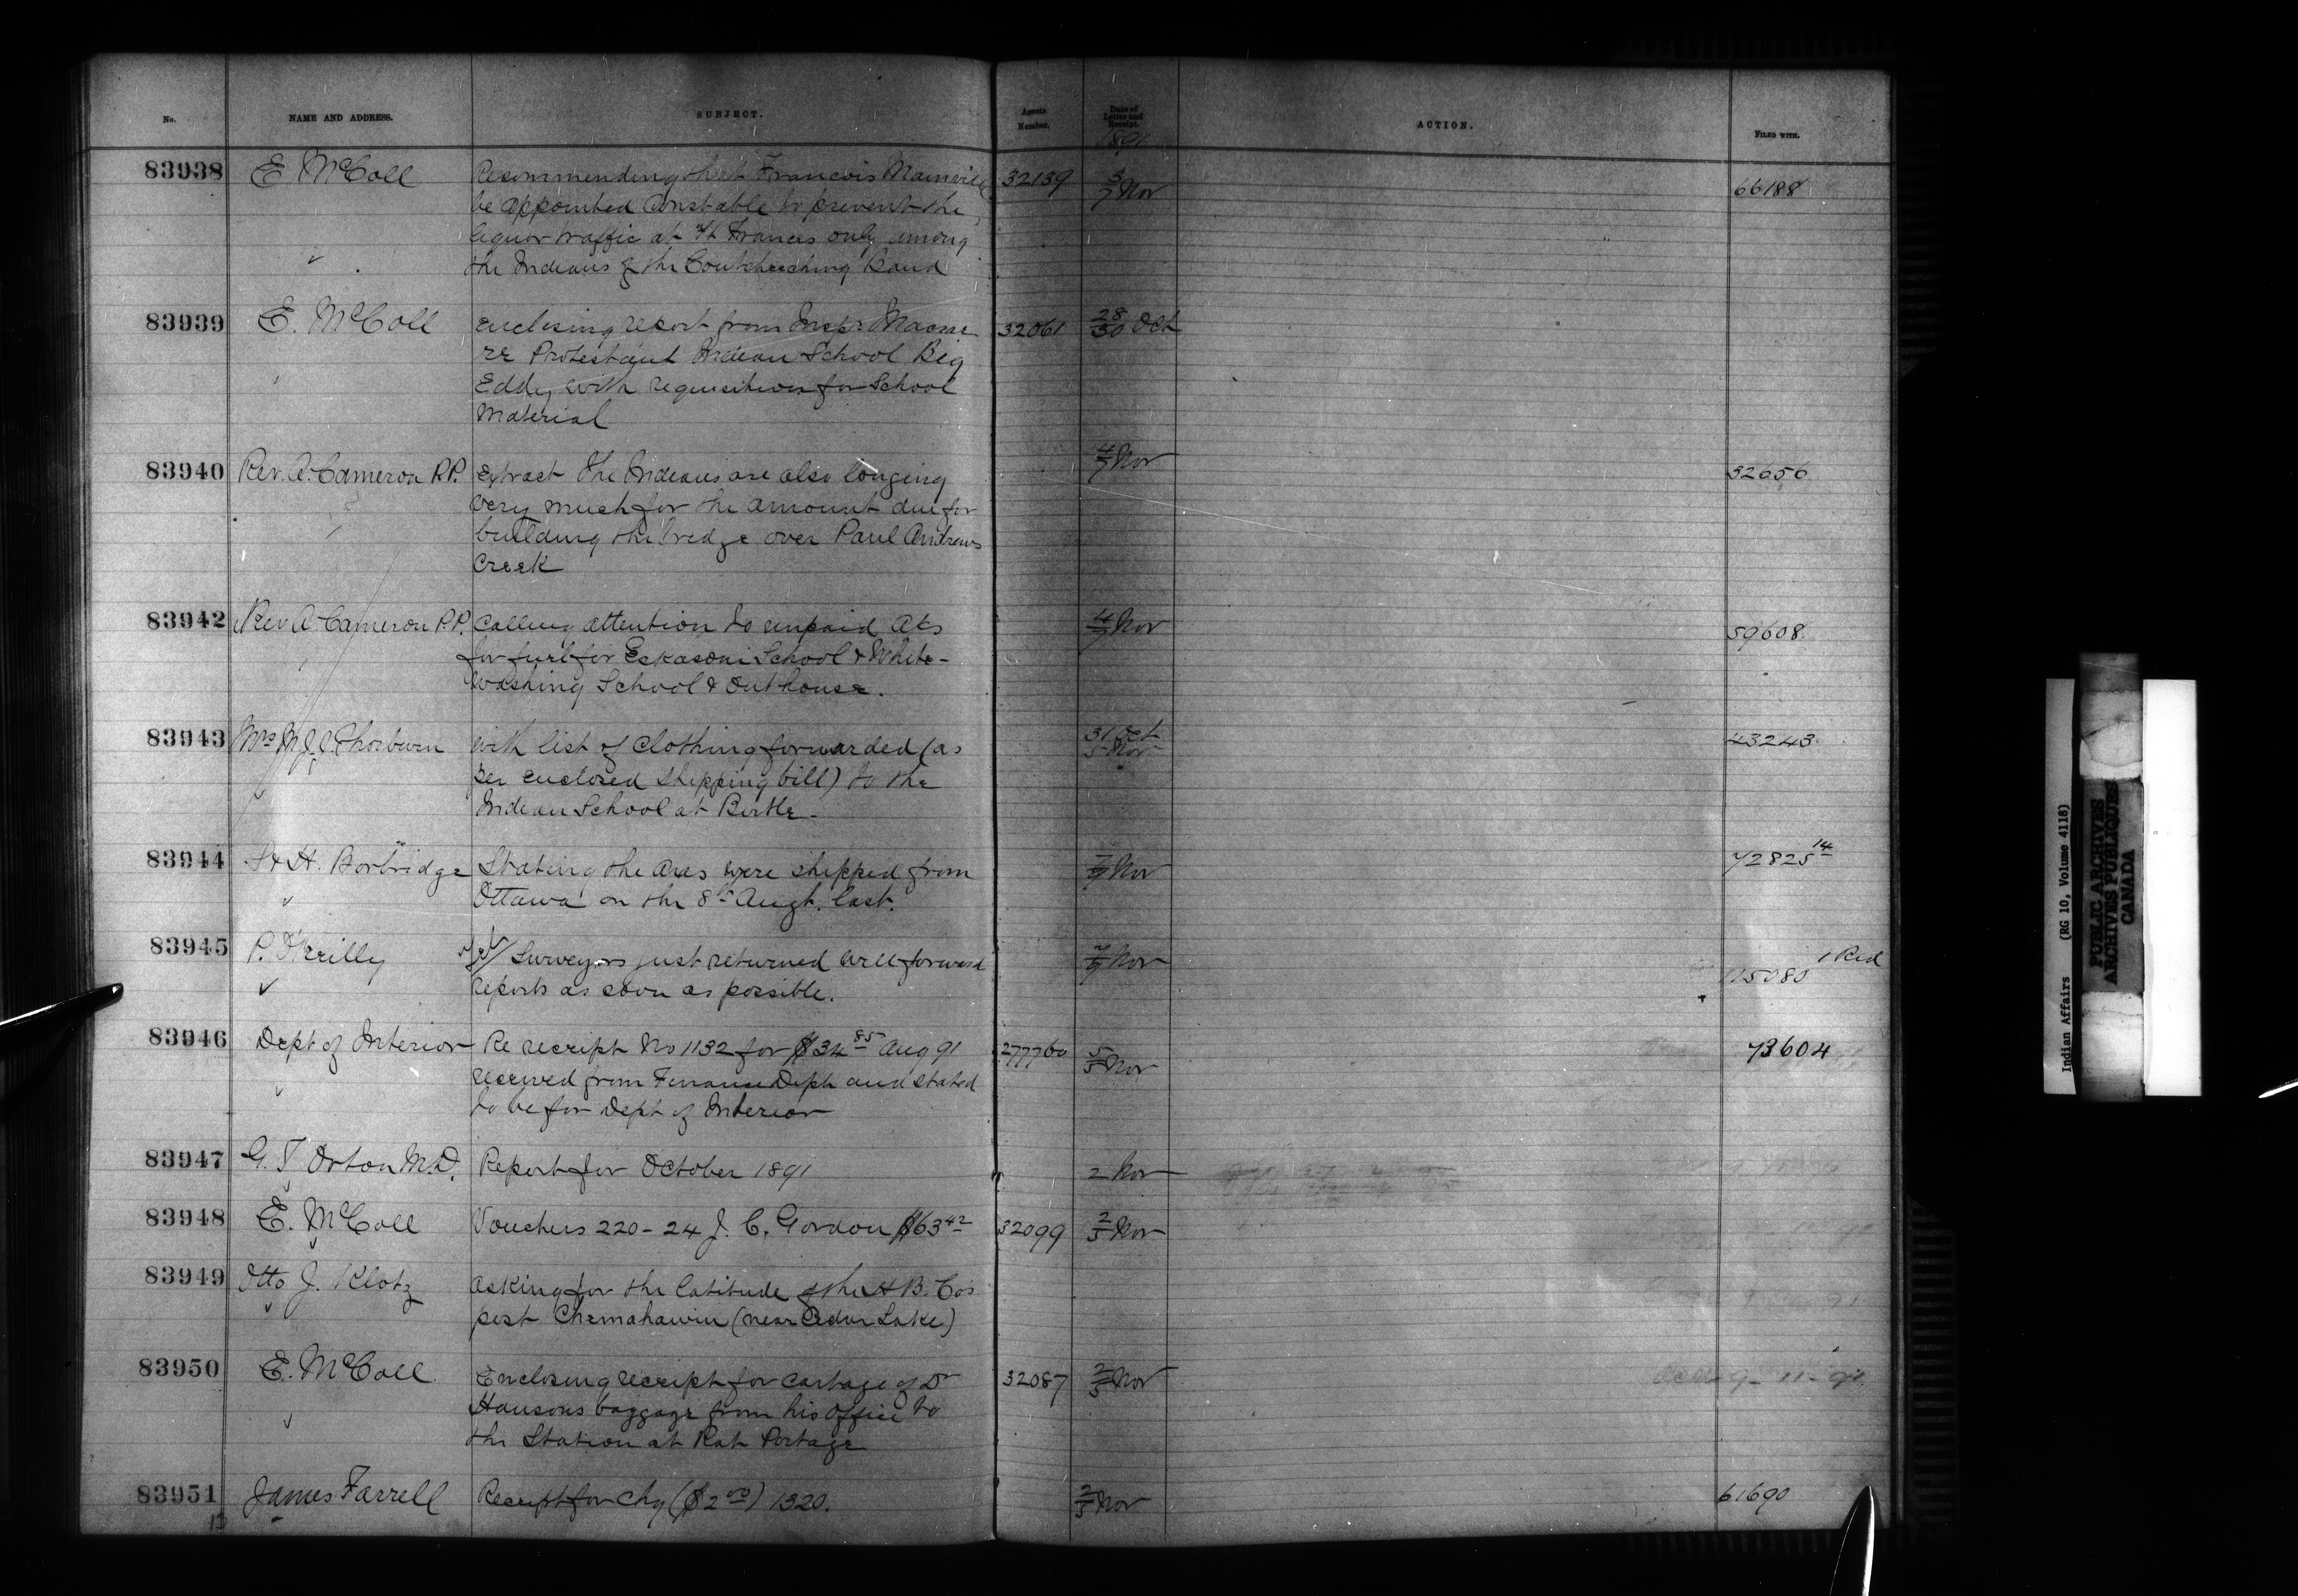 No. NAME AND ADDRESS. SUBJECT. Agents Number. Date of Letter and Receipt. ACTION. FILED WITH.
1891
83938 E McColl Recommending that Francois Mainville 32139 5/7 Nov 66188
be appointed Constable to prevent the
liquor traffic at Ft Frances only among
the Indians of the Coutcheeching Band
83939 E. McColl Enclosing report from Inspr Macrae 32061 28/30 Oct
re Protestant Indian School Big
Eddy with requisition for School
Material
83940 Rev. A. Cameron P.P. Extract The Indians are also longing 4/7 Nov 32656
very much for the amount due for
building the bridge over Paul Andrews
Creek
83942 Rev A. Cameron P.P. Calling attention to unpaid Acs 4/7 Nov 59608
for fuel for Eskasoni School & White-
washing School & Outhouse.
83943 Mrs M.J.C. Thorburn With list of Clothing forwarded (as 31 Oct 5 Nov 43243
per enclosed shipping bill) to the
Indian School at Birtle -
83944 S & H. Borbridge Stating the Axes were shipped from 7/9 Nov 72825 14
Ottawa on the 8th Augt. last.
83945 P. O'Reilly Surveyors just returned will forward 7/9 Nov 115080 1 Red
reports as soon as possible.
83946 Dept of Interior Re receipt No 1132 for $34 85 Aug 91 277760 5/5 Nov 73604
received from Finance Dept and stated
to be for Dept of Interior
83947 G. T Orton M.D. Report for October 1891 2 Nov
83948 E. McColl Vouchers 220-24 J. C. Gordon $63 42 32099 2/5 Nov
83949 Otto J. Klotz Asking for the latitude of the H B. Co's
post Chemahawin (near Cedar Lake)
83950 E. McColl Enclosing receipt for cartage of Dr 32087 2/5 Nov
Hansons baggage from his office to
the Station at Rat Portage
83951 James Farrell Receipt for Chq ($2 00) 1320. 2/5 Nov 61690
Indian Affairs (RG 10, Volume 4118)
PUBLIC ARCHIVES
ARCHIVES PUBLIQUES
CANADA